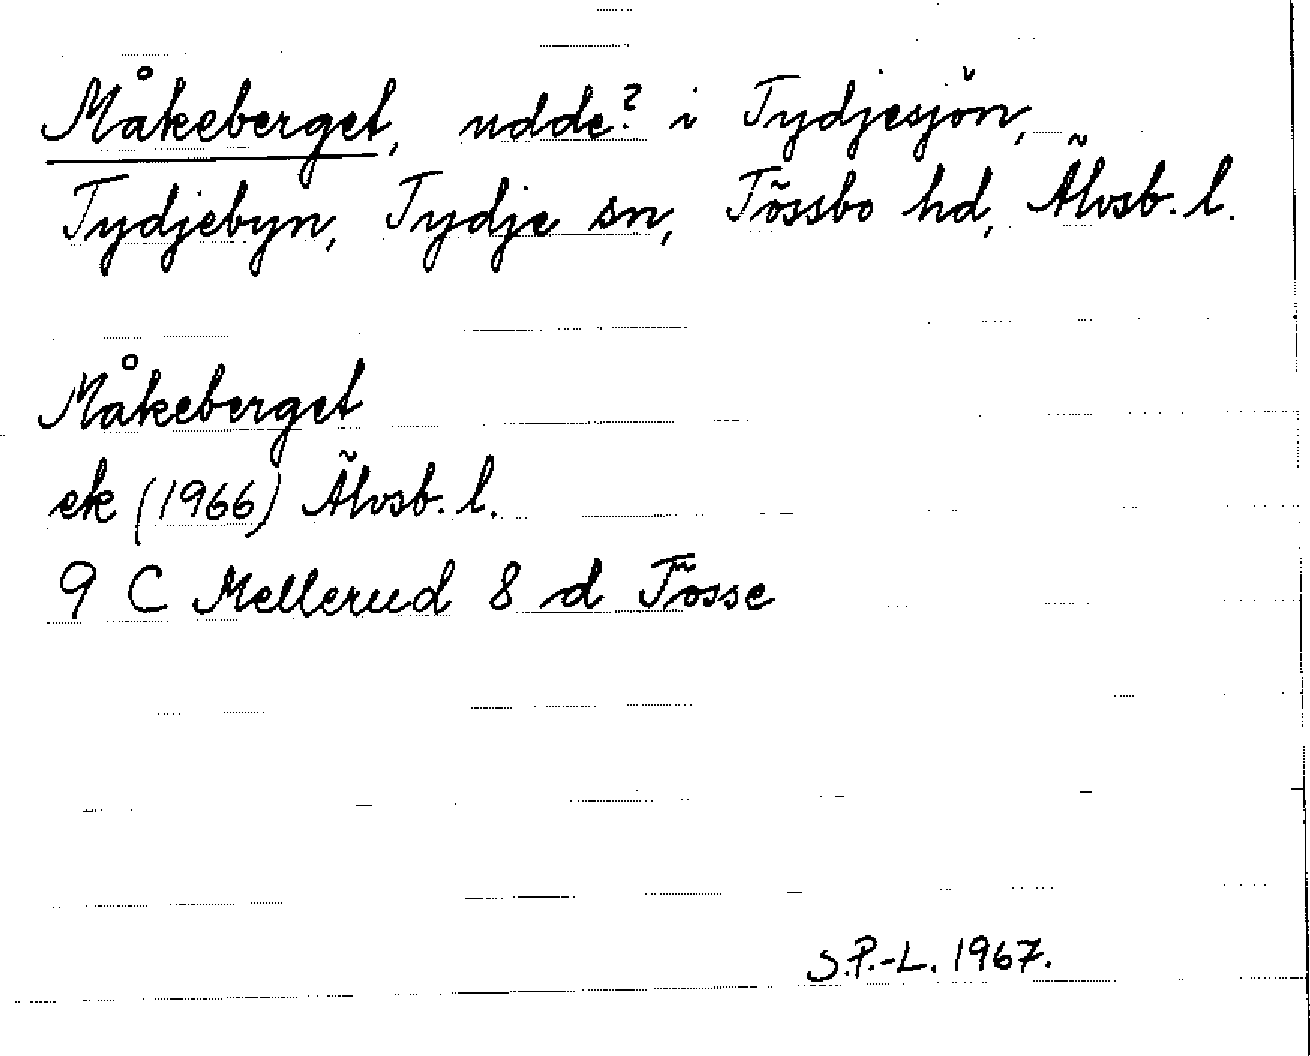 Måkeberget, udde? i Tydjesjön,
Tydjebyn, Tydje sn, Tössbo hd, Älvsb. l.
Måkeberget
ek (1966) Älvsb. l.
9 C Mellerud 8 d Tösse
S.P.-L. 1967.